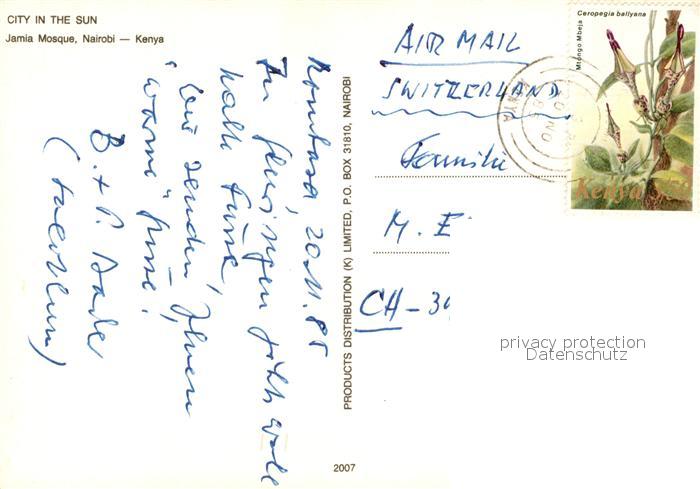 CITY IN THE SUN
Jamia Mosque, Nairobi — Kenya
Mombasa, 20.11.85
In
kalte Füsse,
Wir senden Ihnen
"warme" Füsse!
B. + P.
PRODUCTS DISTRIBUTION (K) LIMITED, P.O. BOX 31810, NAIROBI
2007
AIR MAIL
SWITZERLAND
Familie
M. E
CH - 39
Ceropegia ballyana
Mtongo Mbeja
Kenya
privacy protection
Datenschutz